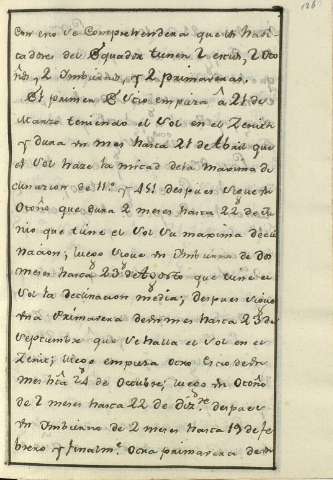 126
con eso se comprehendera que los havi-
tadores del Equador tienen 2 estios, 2 oto-
ños, y 2 Imbiernos, y 2 primaveras.
El primer Estio empieza â 21 de
Marzo teniendo el Sol en el Zenith
y dura un mes hasta 21 de Abril que
el Sol haze la mitad de la maxima de-
clinacion de 11º y 45' despues sigue un
Otoño que dura 2 meses hasta 22 de Ju-
nio que tiene el Sol su maxima decli
nacion; luego sigue un Imbierno de dos
meses hasta 23 de Agosto que tiene el
Sol la declinacion media; despues sigue
una Primavera de un mes hasta 23 de
Septiembre que se halla el Sol en el
Zenit; luego empieza otro Estio de un
mes hta 24 de Octubre; luego un Otoño
de 2 meses hasta 22 de Dizre. despues
un Imbierno de 2 meses hasta 19 de fe-
brero y finalme. otra primavera de un